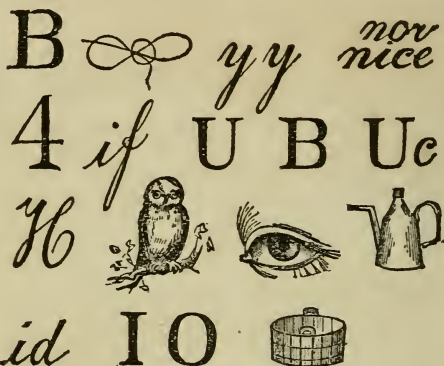 B yy nor
nice
4 if U B Uc
H
id I O